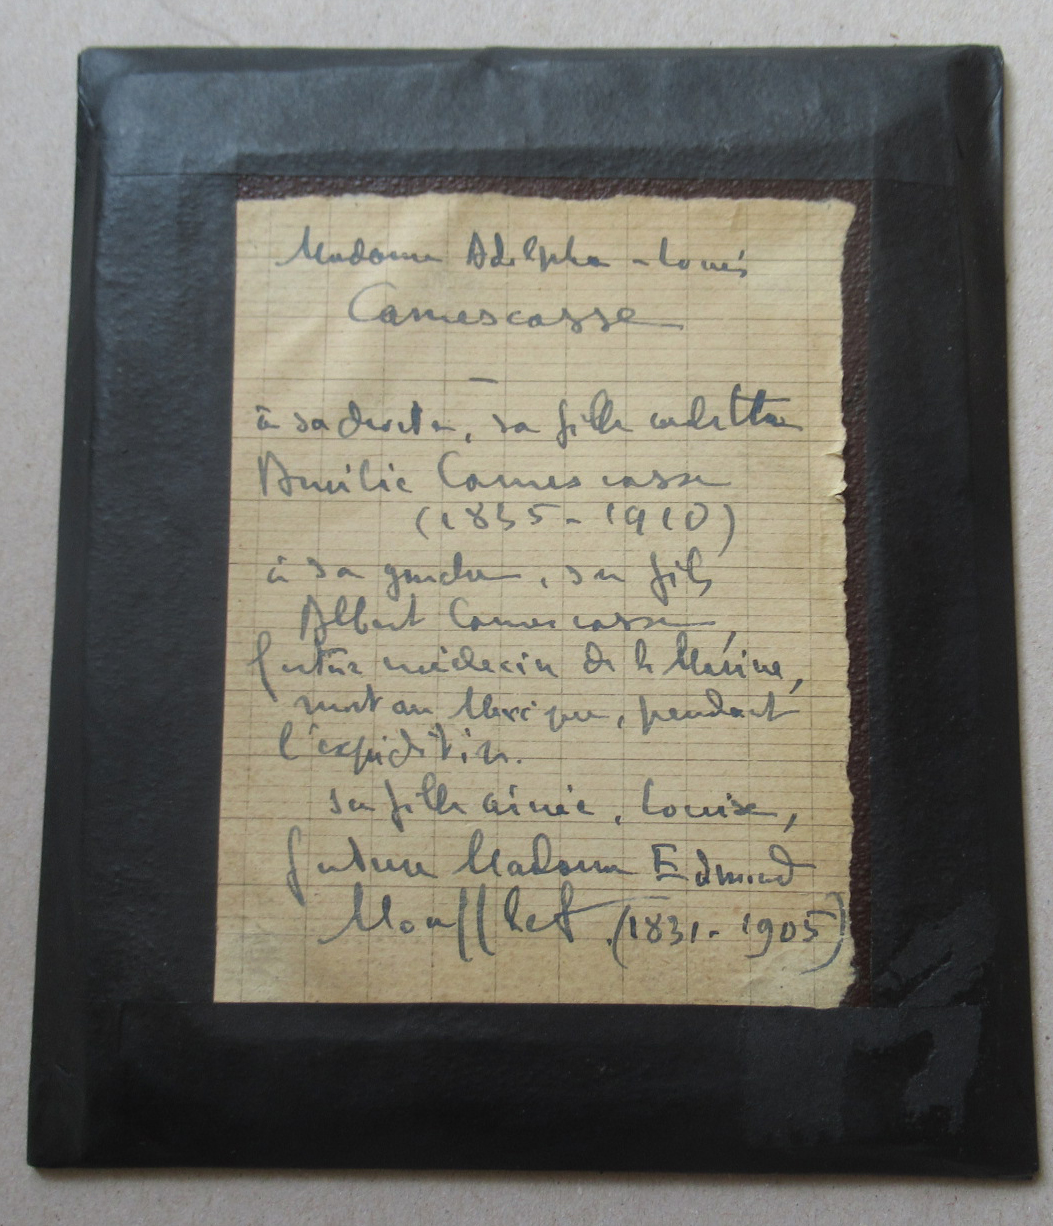 Madame Adolphe-Louis
Camescasse
—
à sa droite, sa fille cadette
Amélie Camescasse
(1835-1910)
à sa gauche, son fils
Albert Camescasse,
futur médecin de la Marine,
mort au Mexique, pendant
l'expédition.
sa fille aînée, Louise,
future Madame Edmond
Moufflet (1831-1905)